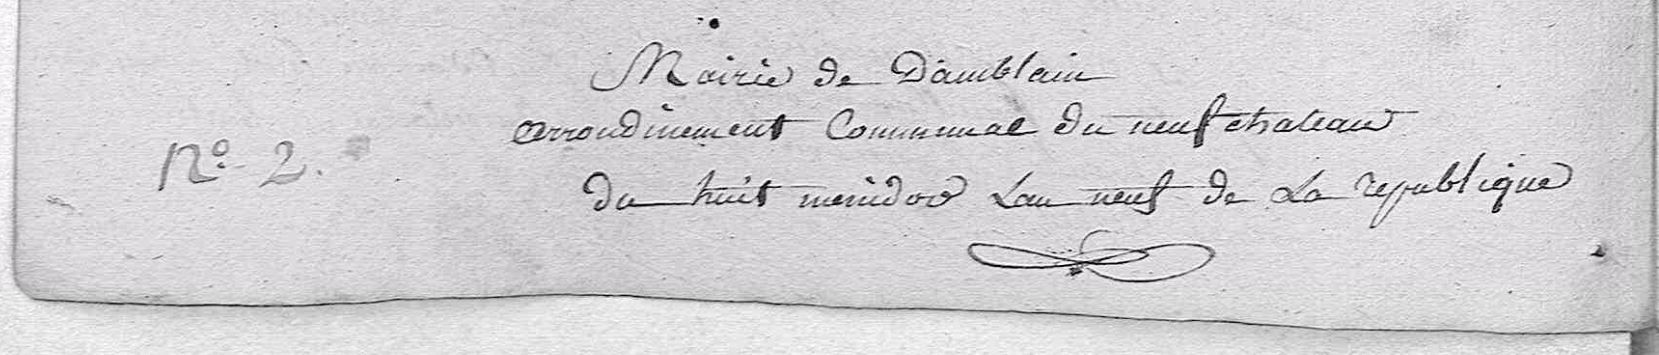 Mairie de Damblain
arrondinement Communal du neufchateau
N.º 2.
du huit menidor Lan neuf de La republique